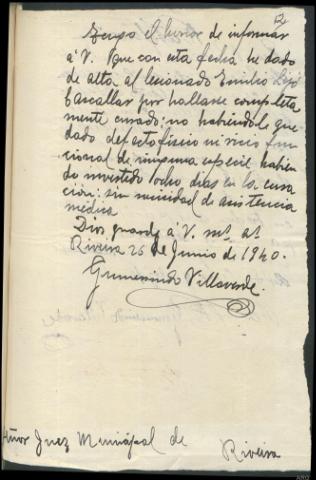 2
Tengo el honor de informar
á V. Que con esta fecha he dado
de alta al lesionado Emilio
Bascallar por hallarse completa
mente curado: no habiendole que
dado defecto fisico ni vicio fun
cional de ninguna especie habien
do invertido ocho dias en la cura
cion: sin necesidad de asistencia
médica
Dios guarde á V. ms. as.
Riveira 26 de Junio de 1940.
Gumersindo Villaverde.
Señor Juez Municipal de Riveira